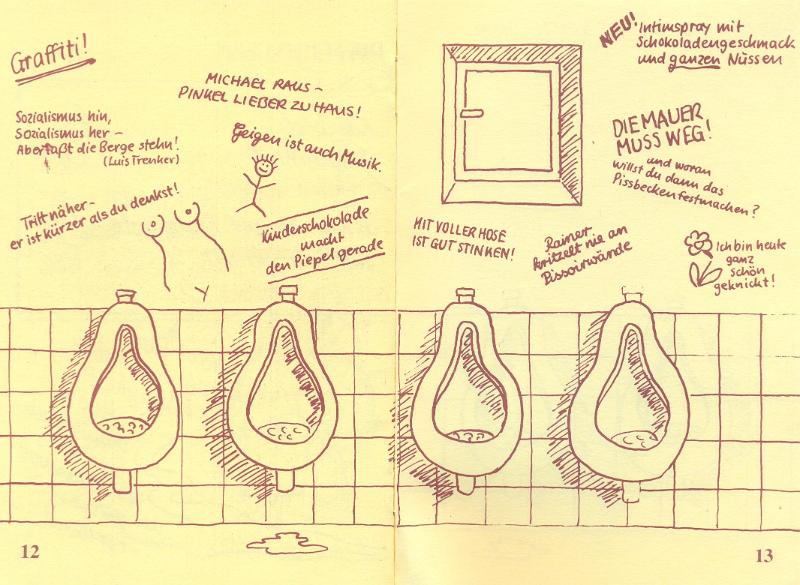 Graffiti!
MICHAEL RAUS –
PINKEL LIEBER ZU HAUS!
Sozialismus hin,
Sozialismus her –
Aber faßt die Berge stehn!
(Luis Trenker)
Geigen ist auch Musik.
Tritt näher –
er ist kürzer als du denkst!
Kinderschokolade
macht
den Piepel gerade
12
NEU! Intimspray mit
Schokoladengeschmack
und ganzen Nüssen
DIE MAUER
MUSS WEG!
und woran
willst du dann das
Pissbecken festmachen?
MIT VOLLER HOSE
IST GUT STINKEN!
Rainer
kritzelt nie an
Pissoirwände
Ich bin heute
ganz
schön
geknickt!
13